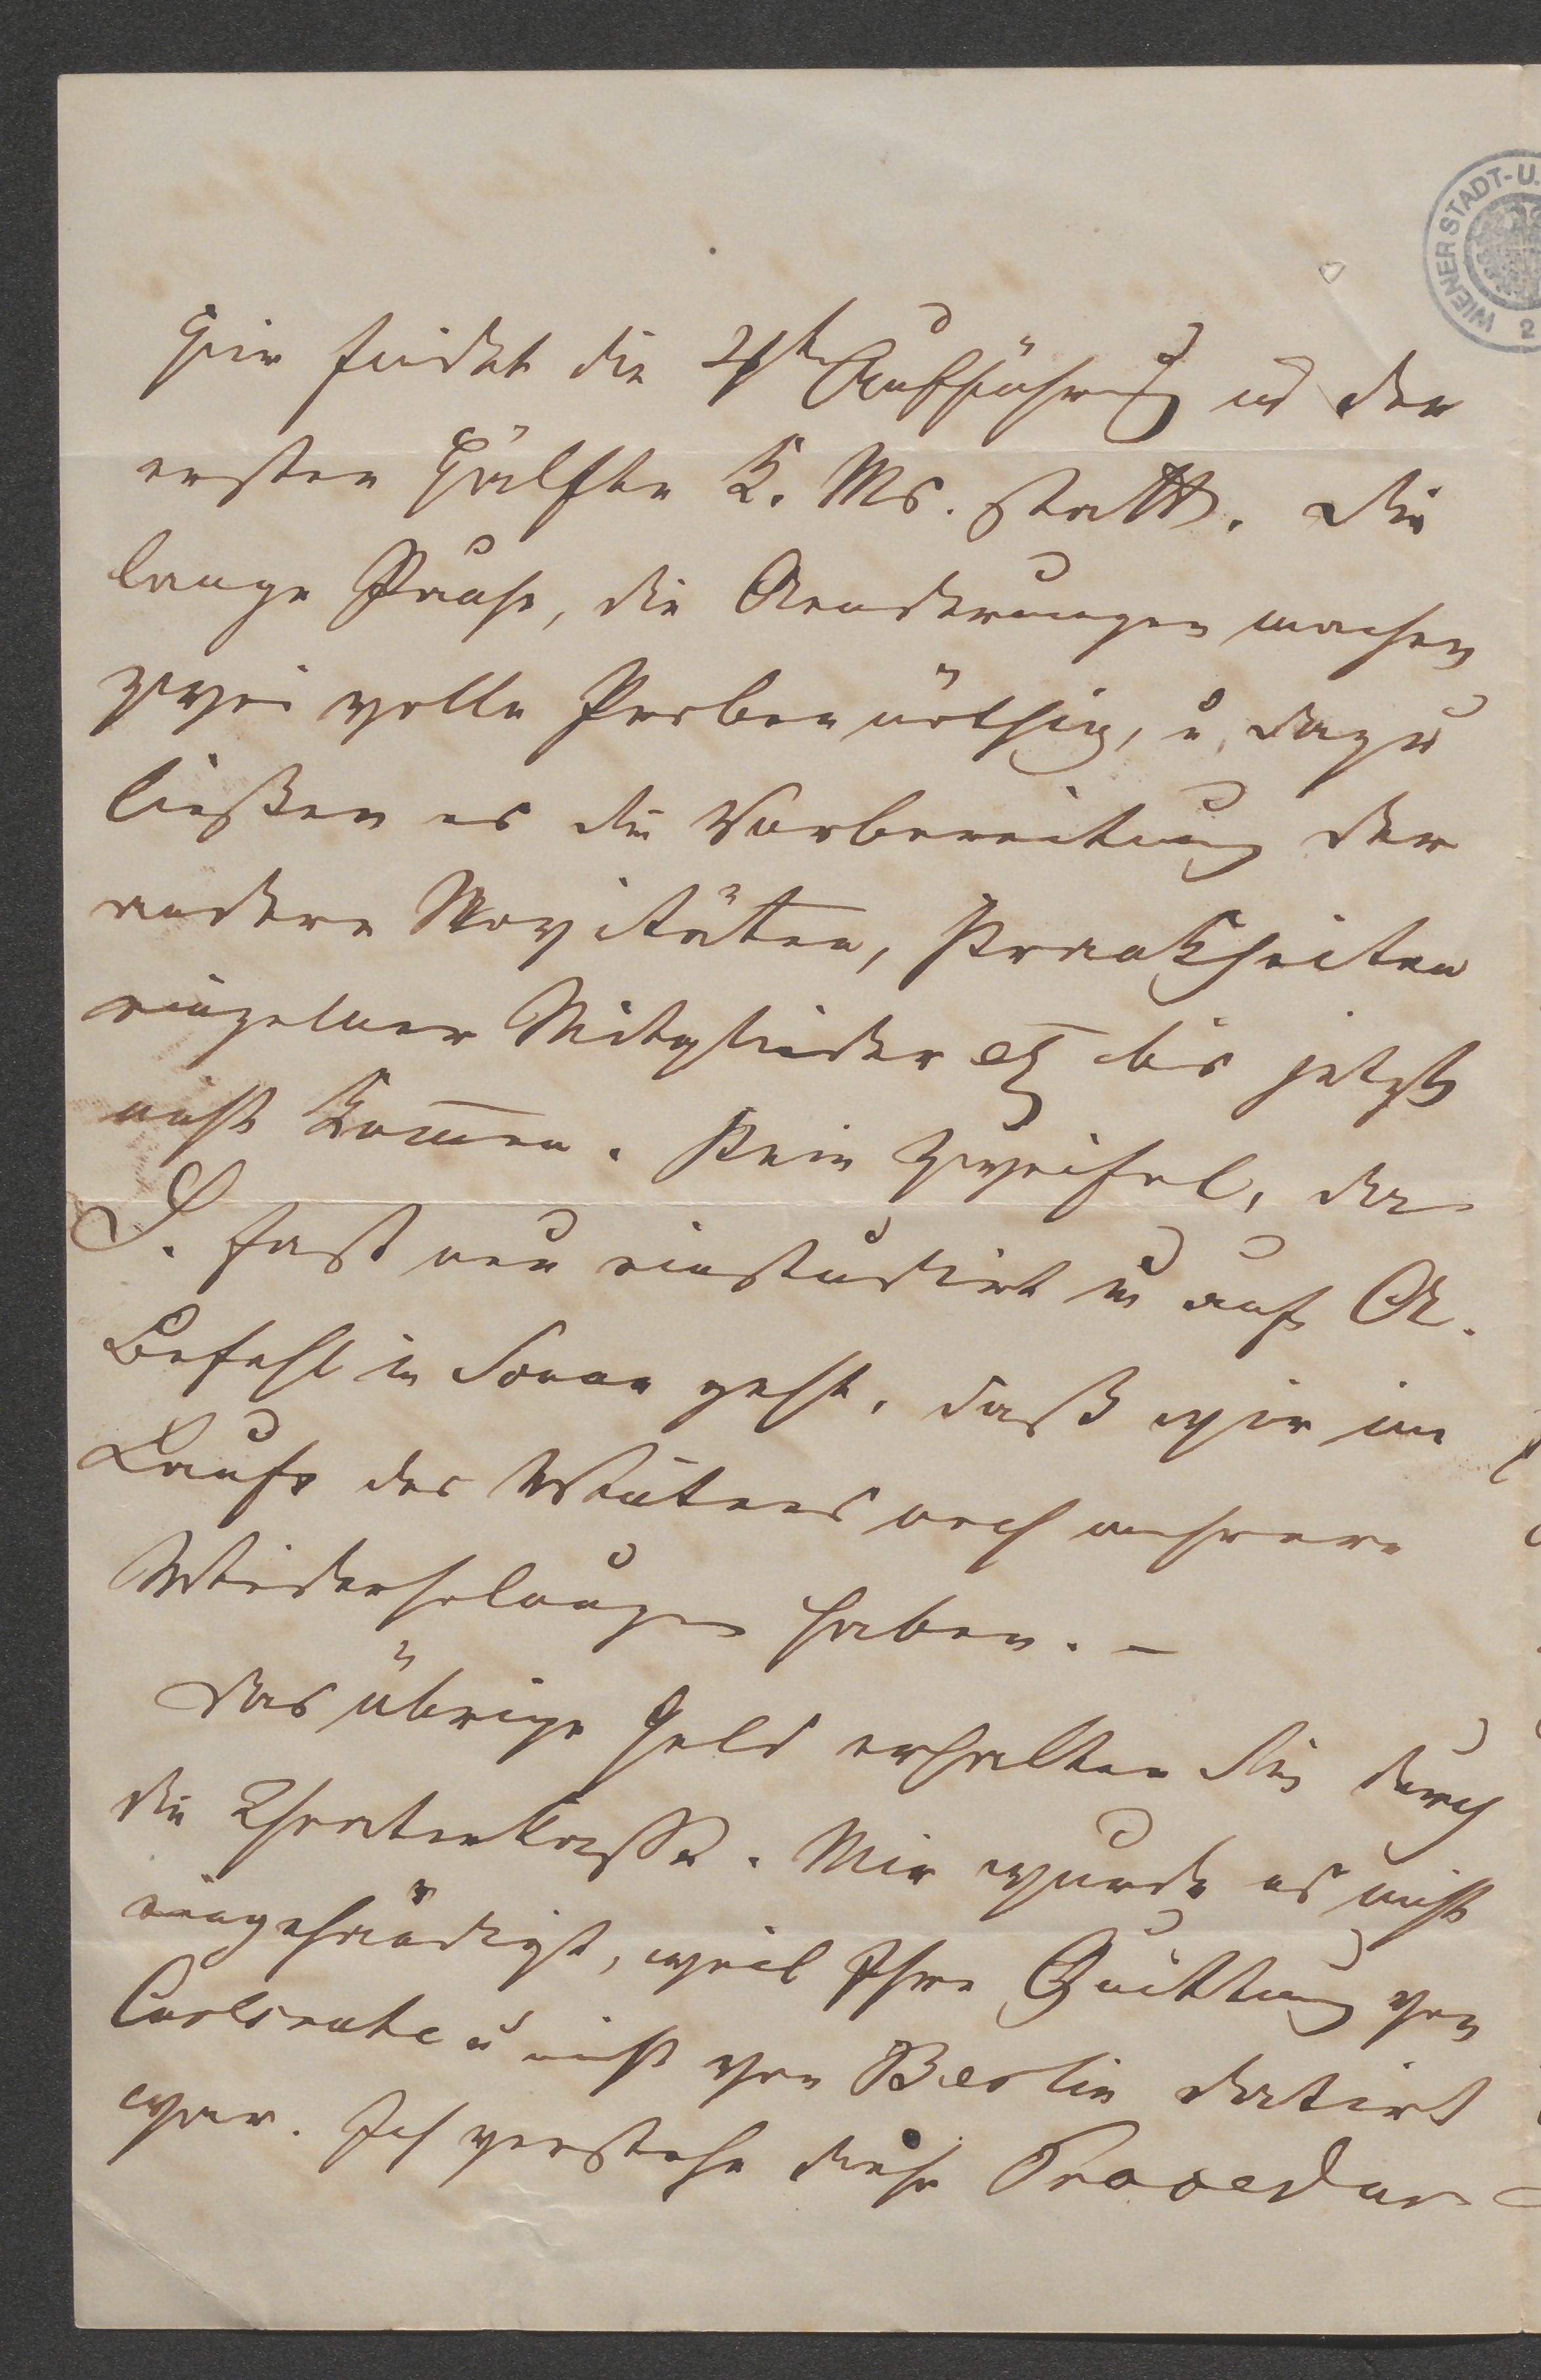 WIENER STADT-U.
2
Hier findet die 4te Aufführung in der
ersten Hälfte k. Ms. statt. Die
lange Pause, die Aenderungen machen
zwei volle Proben nöthig, u. dazu
ließen es die Vorbereitung der
andern Novitäten, Krankheiten
einzelner Mitglieder etz bis jetzt
nicht kommen. Kein Zweifel, da
S. fast neu einstudirt u auf A.
Befehl in Scene geht, daß wir im
Laufe des Winters noch mehrere
Wiederholungen haben. –
Das übrige Geld erhalten Sie durch
die Theaterkasse. Mir wurde es nicht
eingehändigt, weil Ihre Quittung von
Carlsruhe u nicht von Berlin datirt
war. Ich verstehe diese Procedur